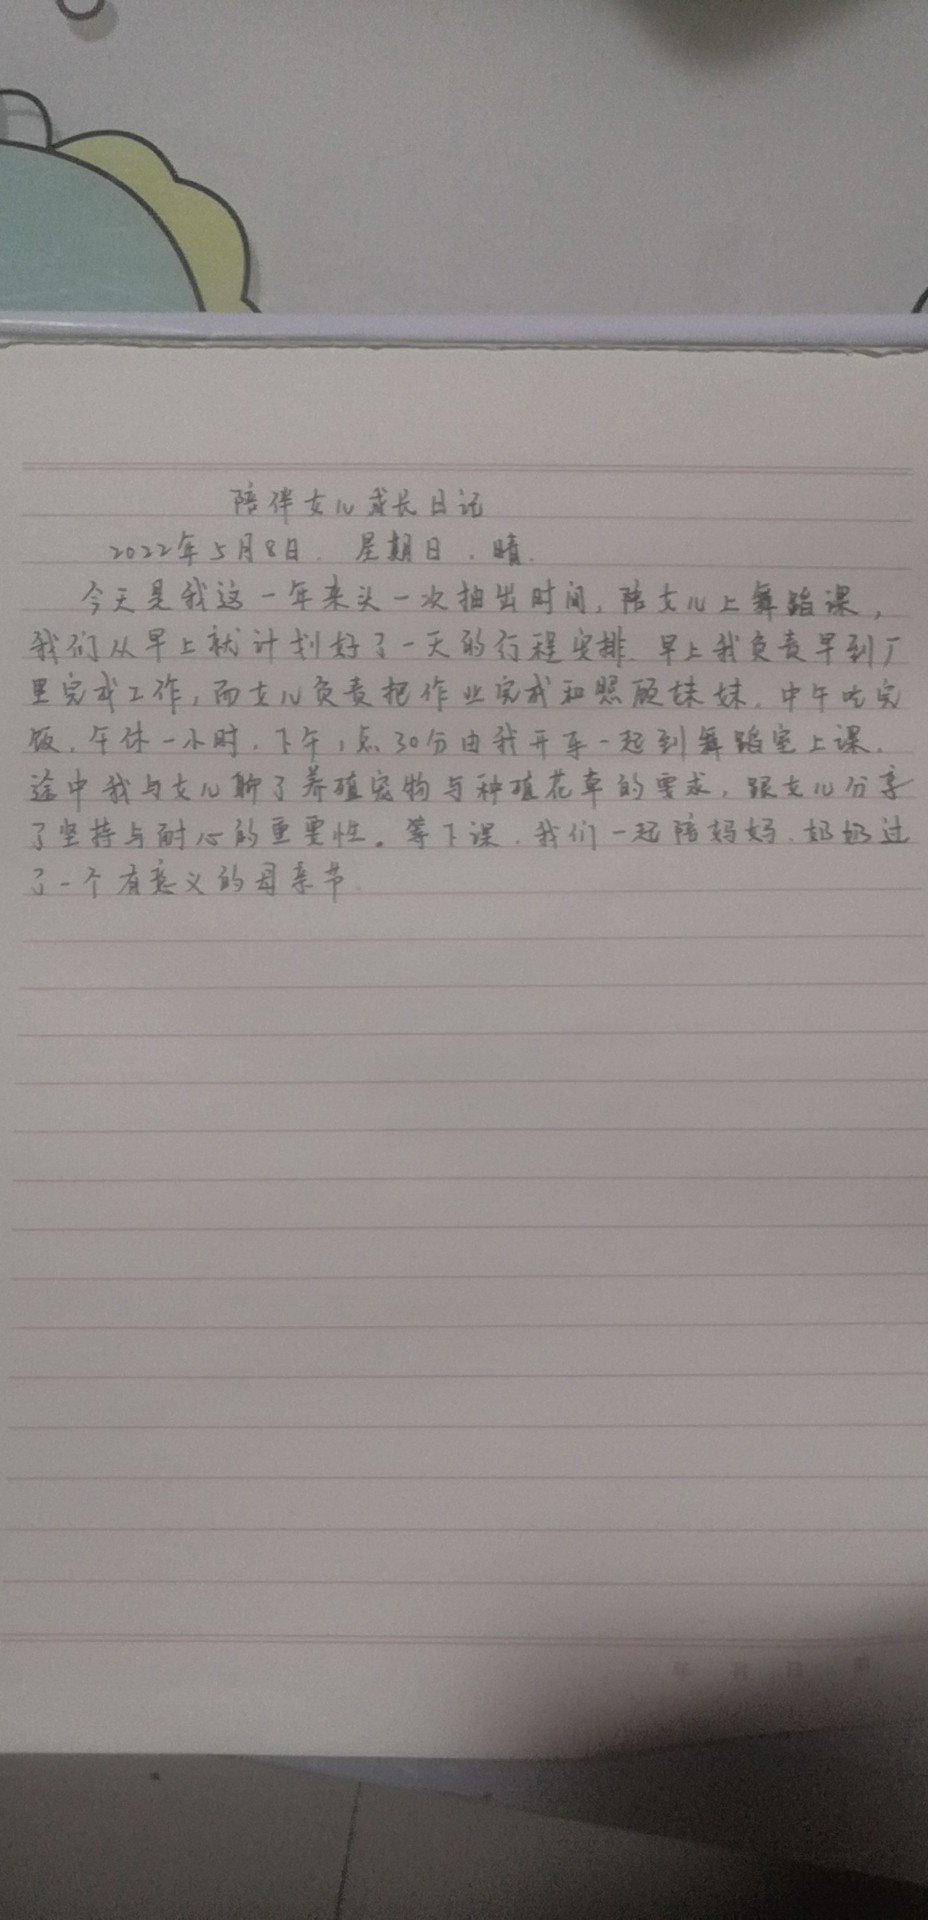 陪伴女儿成长日记
2022年5月8日. 星期日. 晴.
今天是我这一年来头一次抽出时间,陪女儿上舞蹈课,
我们从早上就计划好了一天的行程安排. 早上我负责早到厂
里完成工作,而女儿负责把作业完成和照顾妹妹. 中午吃完
饭. 午休一小时. 下午1点30分由我开车一起到舞蹈室上课.
途中我与女儿聊了养殖宠物与种植花草的要求. 跟女儿分享
了坚持与耐心的重要性。等下课. 我们一起陪妈妈. 奶奶过
了一个有意义的母亲节.
年 月 日